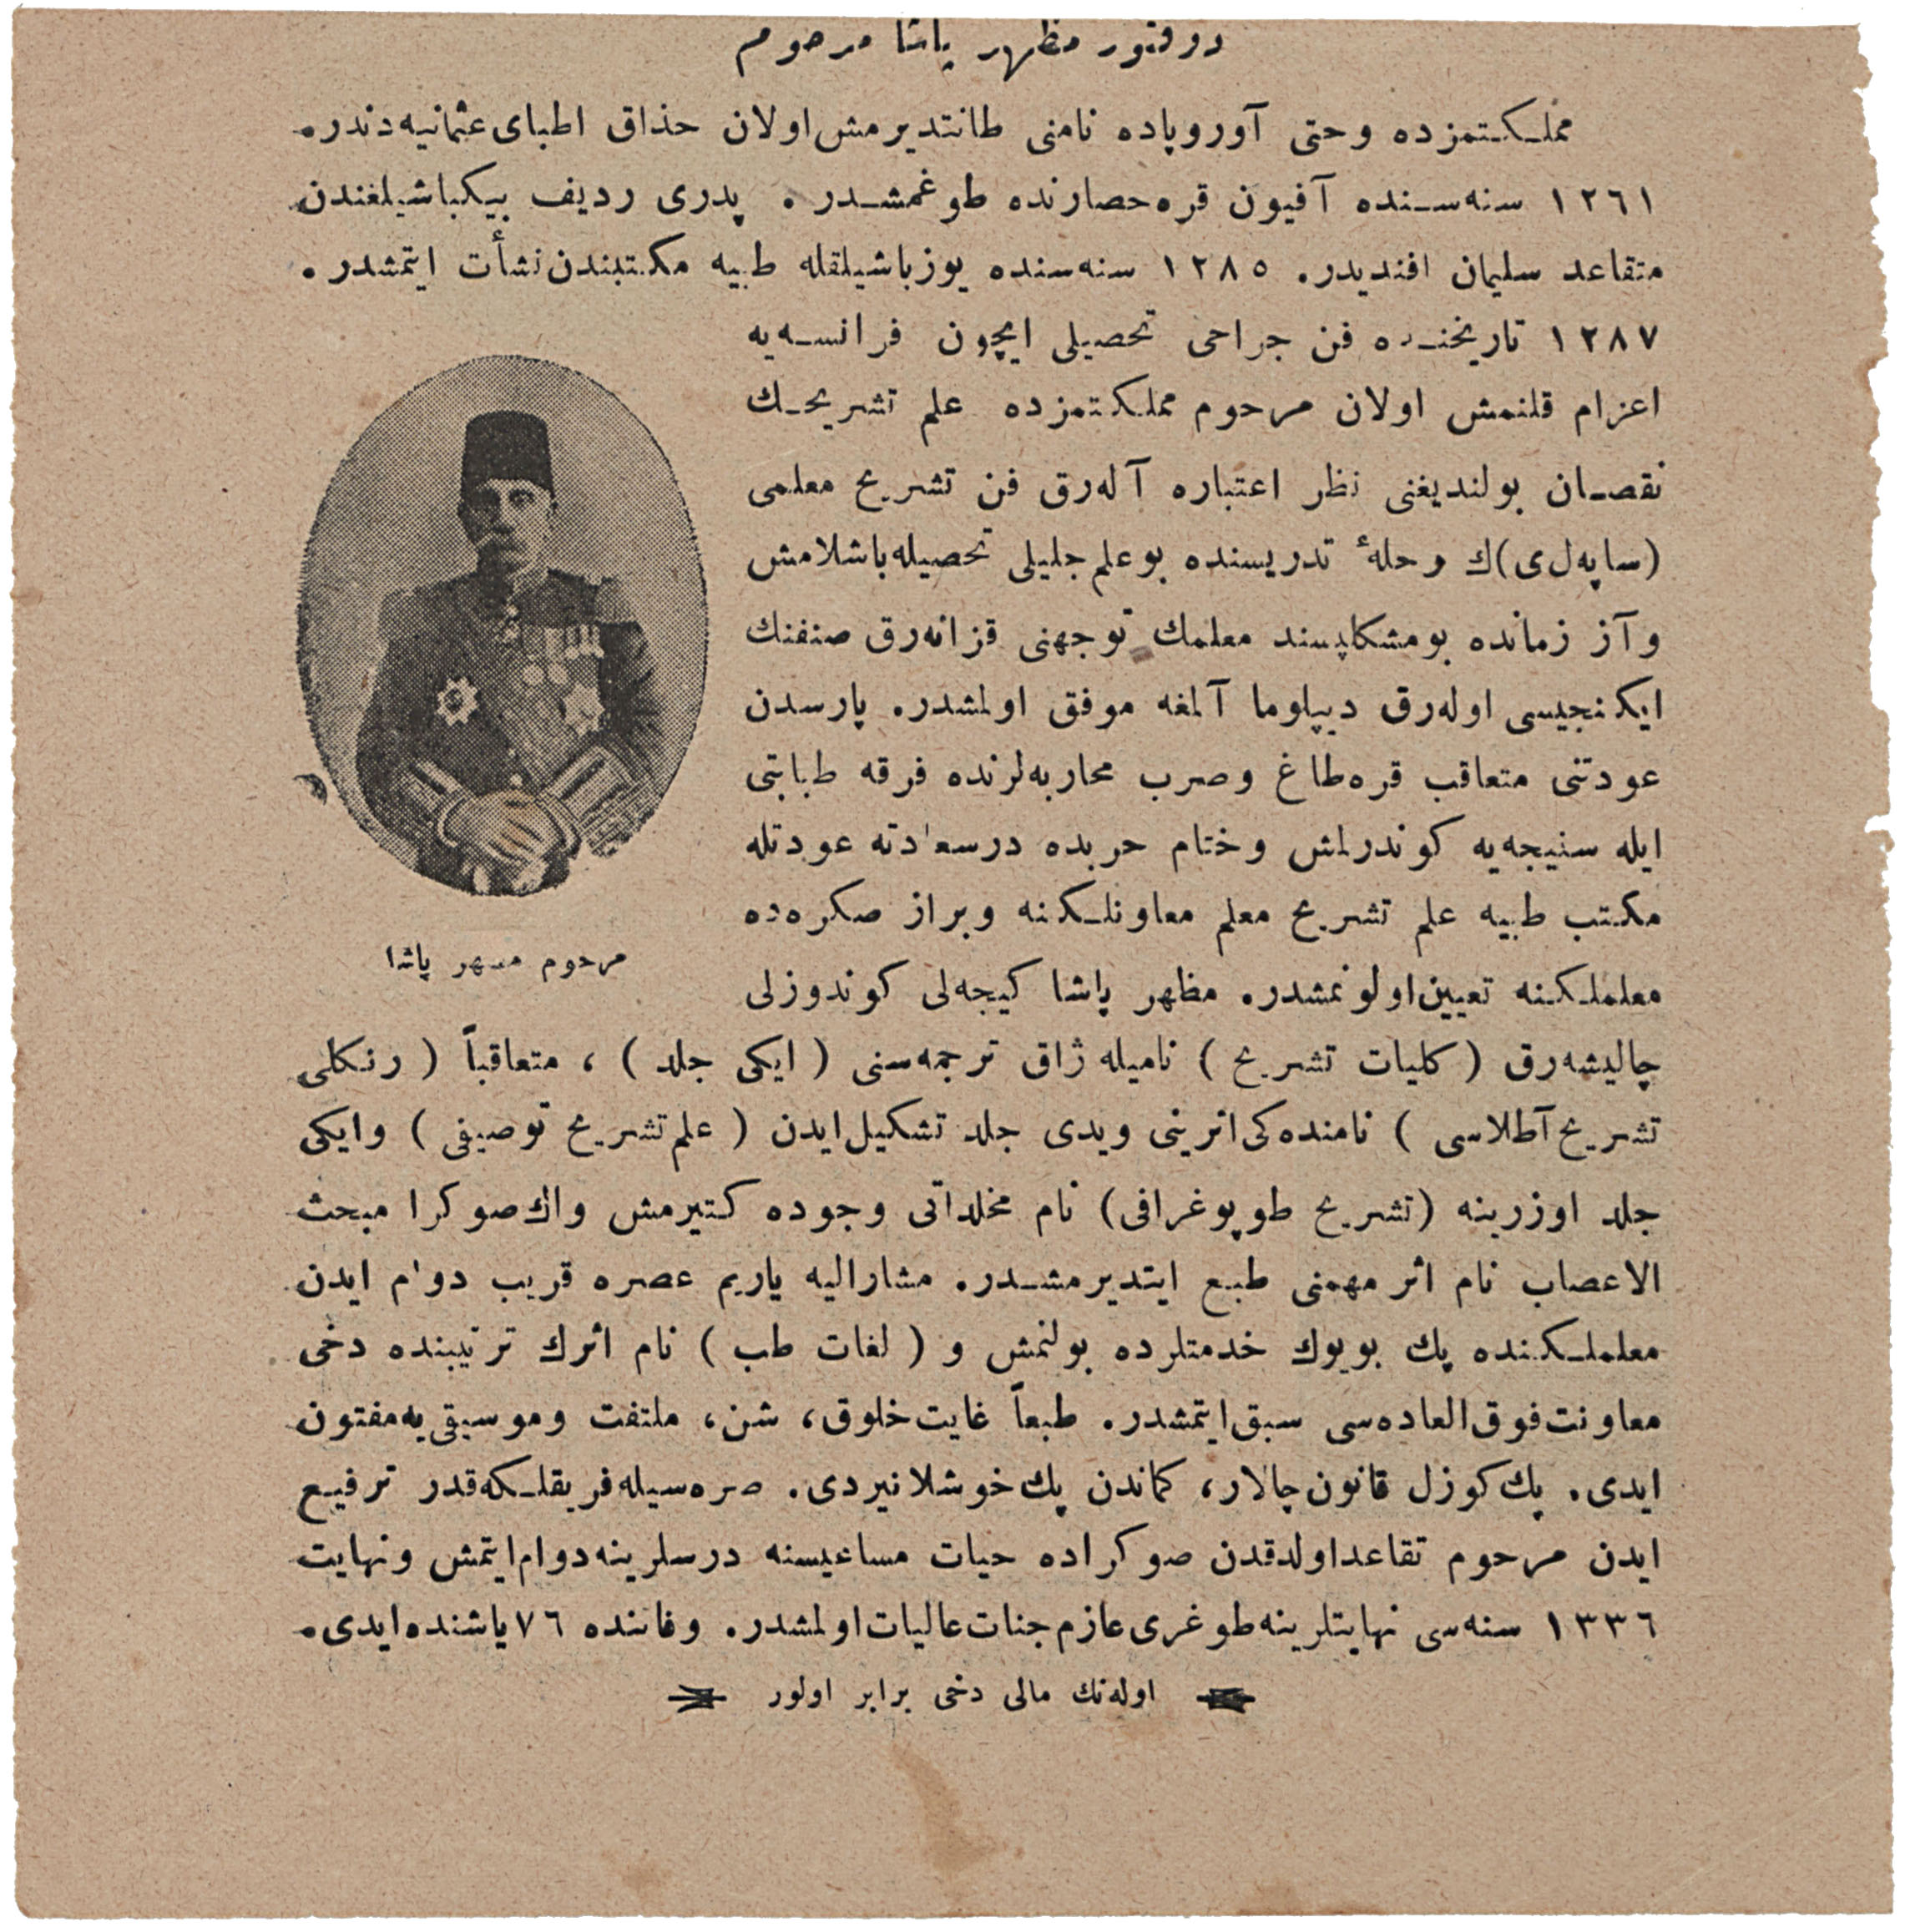 دوقتور مظهر پاشا مرحوم
مملكتمزده وحتى آوروپاده نامنى طانتديرمش اولان حذاق اطباى عثمانيه‌دندر.
١٢٦١ سنه‌سنده آفيون قره‌حصارنده طوغمشدر. پدرى رديف بيكباشيلغندن
متقاعد سليمان افنديدر. ١٢٨٥ سنه‌سنده يوزباشيلقله طبيه مكتبندن نشأت ايتمشدر.
١٢٨٧ تاريخنده فن جراحى تحصيلى ايچون فرانسه‌يه
اعزام قلنمش اولان مرحوم مملكتمزده علم تشريحك
نقصان بولنديغنى نظر اعتباره آله‌رق فن تشريح معلمى
(ساپه‌لى)ك رحلهٔ تدريسنده بوعلم جليلى تحصيله باشلامش
وآز زمانده بومشكلپسند معلمك توجهنى قزانه‌رق صنفنك
ايكنجيسى اوله‌رق ديپلوما آلمغه موفق اولمشدر. پارسدن
عودتنى متعاقب قره‌طاغ وصرب محاربه‌لرنده فرقه طبابتى
ايله سنيجه‌يه كوندرلمش وختام حربده درسعادته عودتله
مكتب طبيه علم تشريح معلم معاونلكنه وبراز صكره‌ده
معلملكنه تعيين اولونمشدر. مظهر پاشا كيجه‌لى كوندوزلى
مرحوم مظهر پاشا
چاليشه‌رق ( كليات تشريح ) ناميله ژاق ترجمه‌سنى ( ايكى جلد ) ، متعاقباً ( رنكلى
تشريح آطلاسى ) نامنده‌كى اثرينى ويدى جلد تشكيل ايدن ( علم تشريح توصيفى ) وايكى
جلد اوزرينه (تشريح طوپوغرافى) نام مخلداتى وجوده كتيرمش واك صوكرا مبحث
الاعصاب نام اثر مهمنى طبع ايتديرمشدر. مشاراليه ياريم عصره قريب دوام ايدن
معلملكنده پك بويوك خدمتلرده بولنمش و ( لغات طب ) نام اثرك ترتيبنده دخى
معاونت فوق‌العاده‌سى سبق ايتمشدر. طبعاً غايت خلوق، شن، ملتفت وموسيقى‌يه مفتون
ايدى. پك كوزل قانون چالار، كماندن پك خوشلانيردى. صره‌سيله فريقلكه قدر ترفيع
ايدن مرحوم تقاعد اولدقدن صوكراده حيات مساعيسنه درسلرينه دوام ايتمش ونهايت
١٣٣٦ سنه‌سى نهايتلرينه طوغرى عازم جنات عاليات اولمشدر. وفاتنده ٧٦ ياشنده ايدى.
اوله‌نك مالى دخى برابر اولور